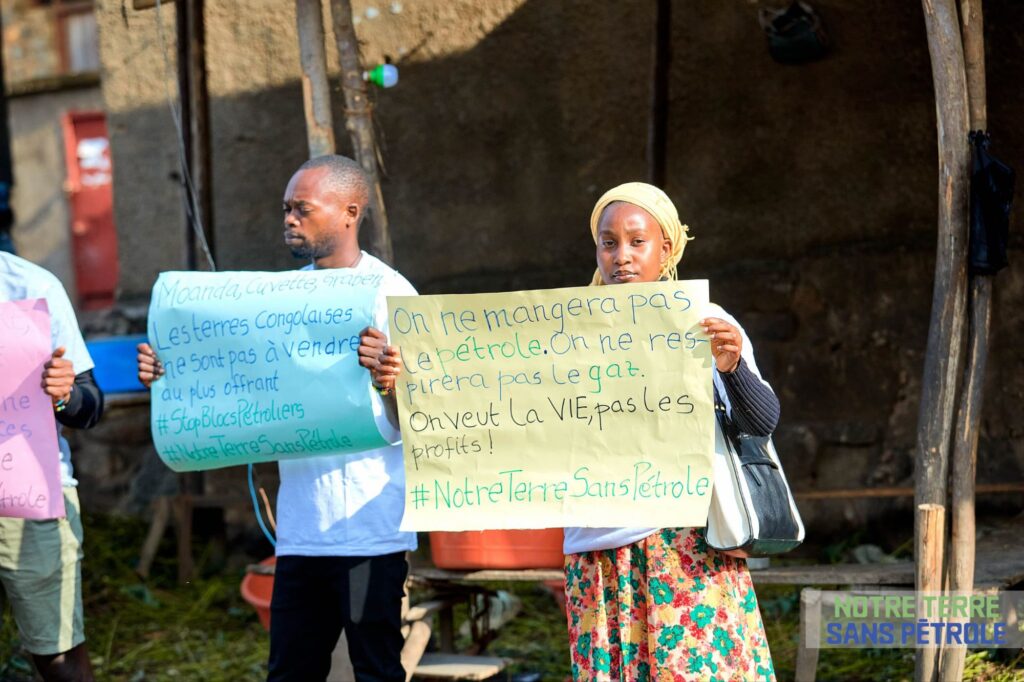 Moanda, Cuvette, Graben,
Les terres Congolaises
ne sont pas à vendre
au plus offrant
#StopBlocsPétroliers
#NotreTerreSansPétrole
On ne mangera pas
le pétrole. On ne res-
pirera pas le gaz.
On veut la VIE, pas les
profits!
#NotreTerreSansPétrole
ne
ces
e
trole
NOTRE TERRE
SANS PÉTROLE